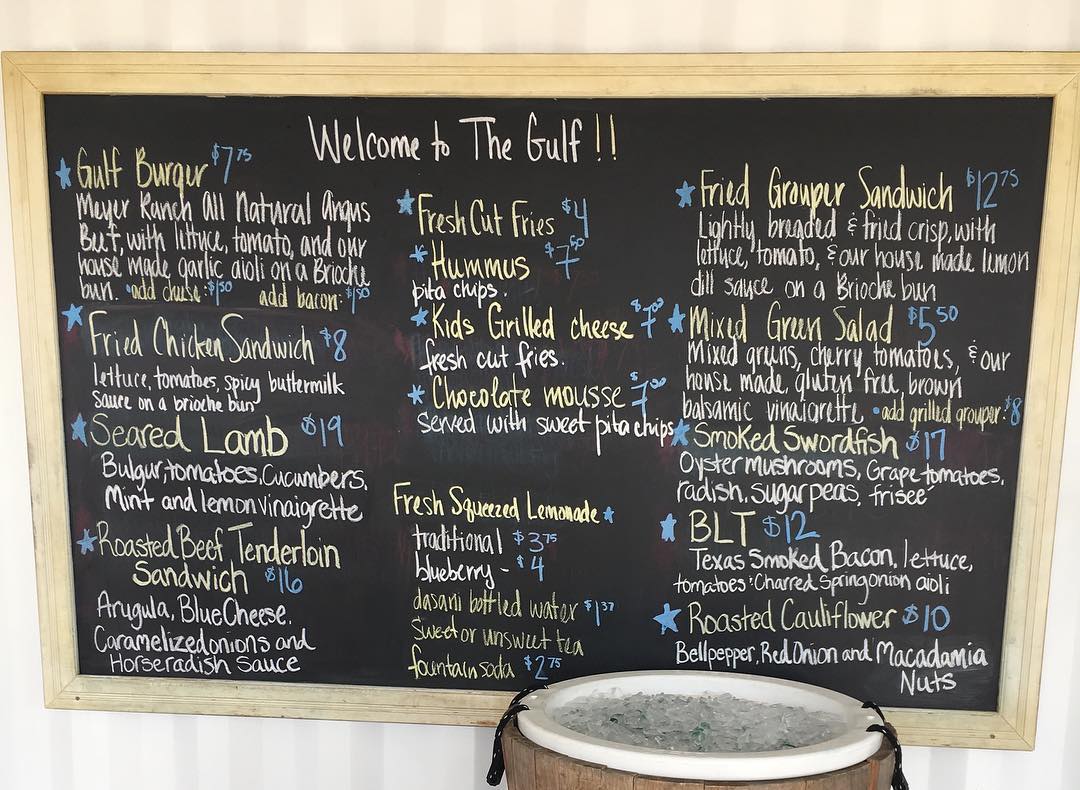 Welcome to The Gulf !!
Gulf Burger $7 75
Meyer Ranch All Natural Angus
Beef, with lettuce, tomato, and our
house made garlic aioli on a Brioche
bun. •add cheese: $1 50 add bacon: $1 50
Fried Chicken Sandwich $8
lettuce, tomatoes, spicy buttermilk
sauce on a brioche bun
Seared Lamb $19
Bulgur, tomatoes, Cucumbers,
Mint and lemon vinaigrette
Roasted Beef Tenderloin
Sandwich $16
Arugula, Blue Cheese,
Caramelized onions and
Horseradish Sauce
Fresh Cut Fries $4
Hummus $7 50
pita chips.
Kids Grilled cheese $7 00
fresh cut fries.
Chocolate mousse $7 00
served with sweet pita chips
Fresh Squeezed Lemonade
traditional $3 75
blueberry - $4
dasani bottled water $1 37
Sweet or unsweet tea
fountain soda $2 75
Fried Grouper Sandwich $12 75
Lightly breaded & fried crisp, with
lettuce, tomato, & our house made lemon
dill sauce on a Brioche bun
Mixed Green Salad $5 50
Mixed greens, cherry tomatoes, & our
house made, gluten free, brown
balsamic vinaigrette •add grilled grouper: $8
Smoked Swordfish $17
Oyster mushrooms, Grape tomatoes,
radish, sugar peas, friseé
BLT $12
Texas Smoked Bacon, lettuce,
tomatoes & Charred Spring onion aioli
Roasted Cauliflower $10
Bellpepper, Red Onion and Macadamia
Nuts